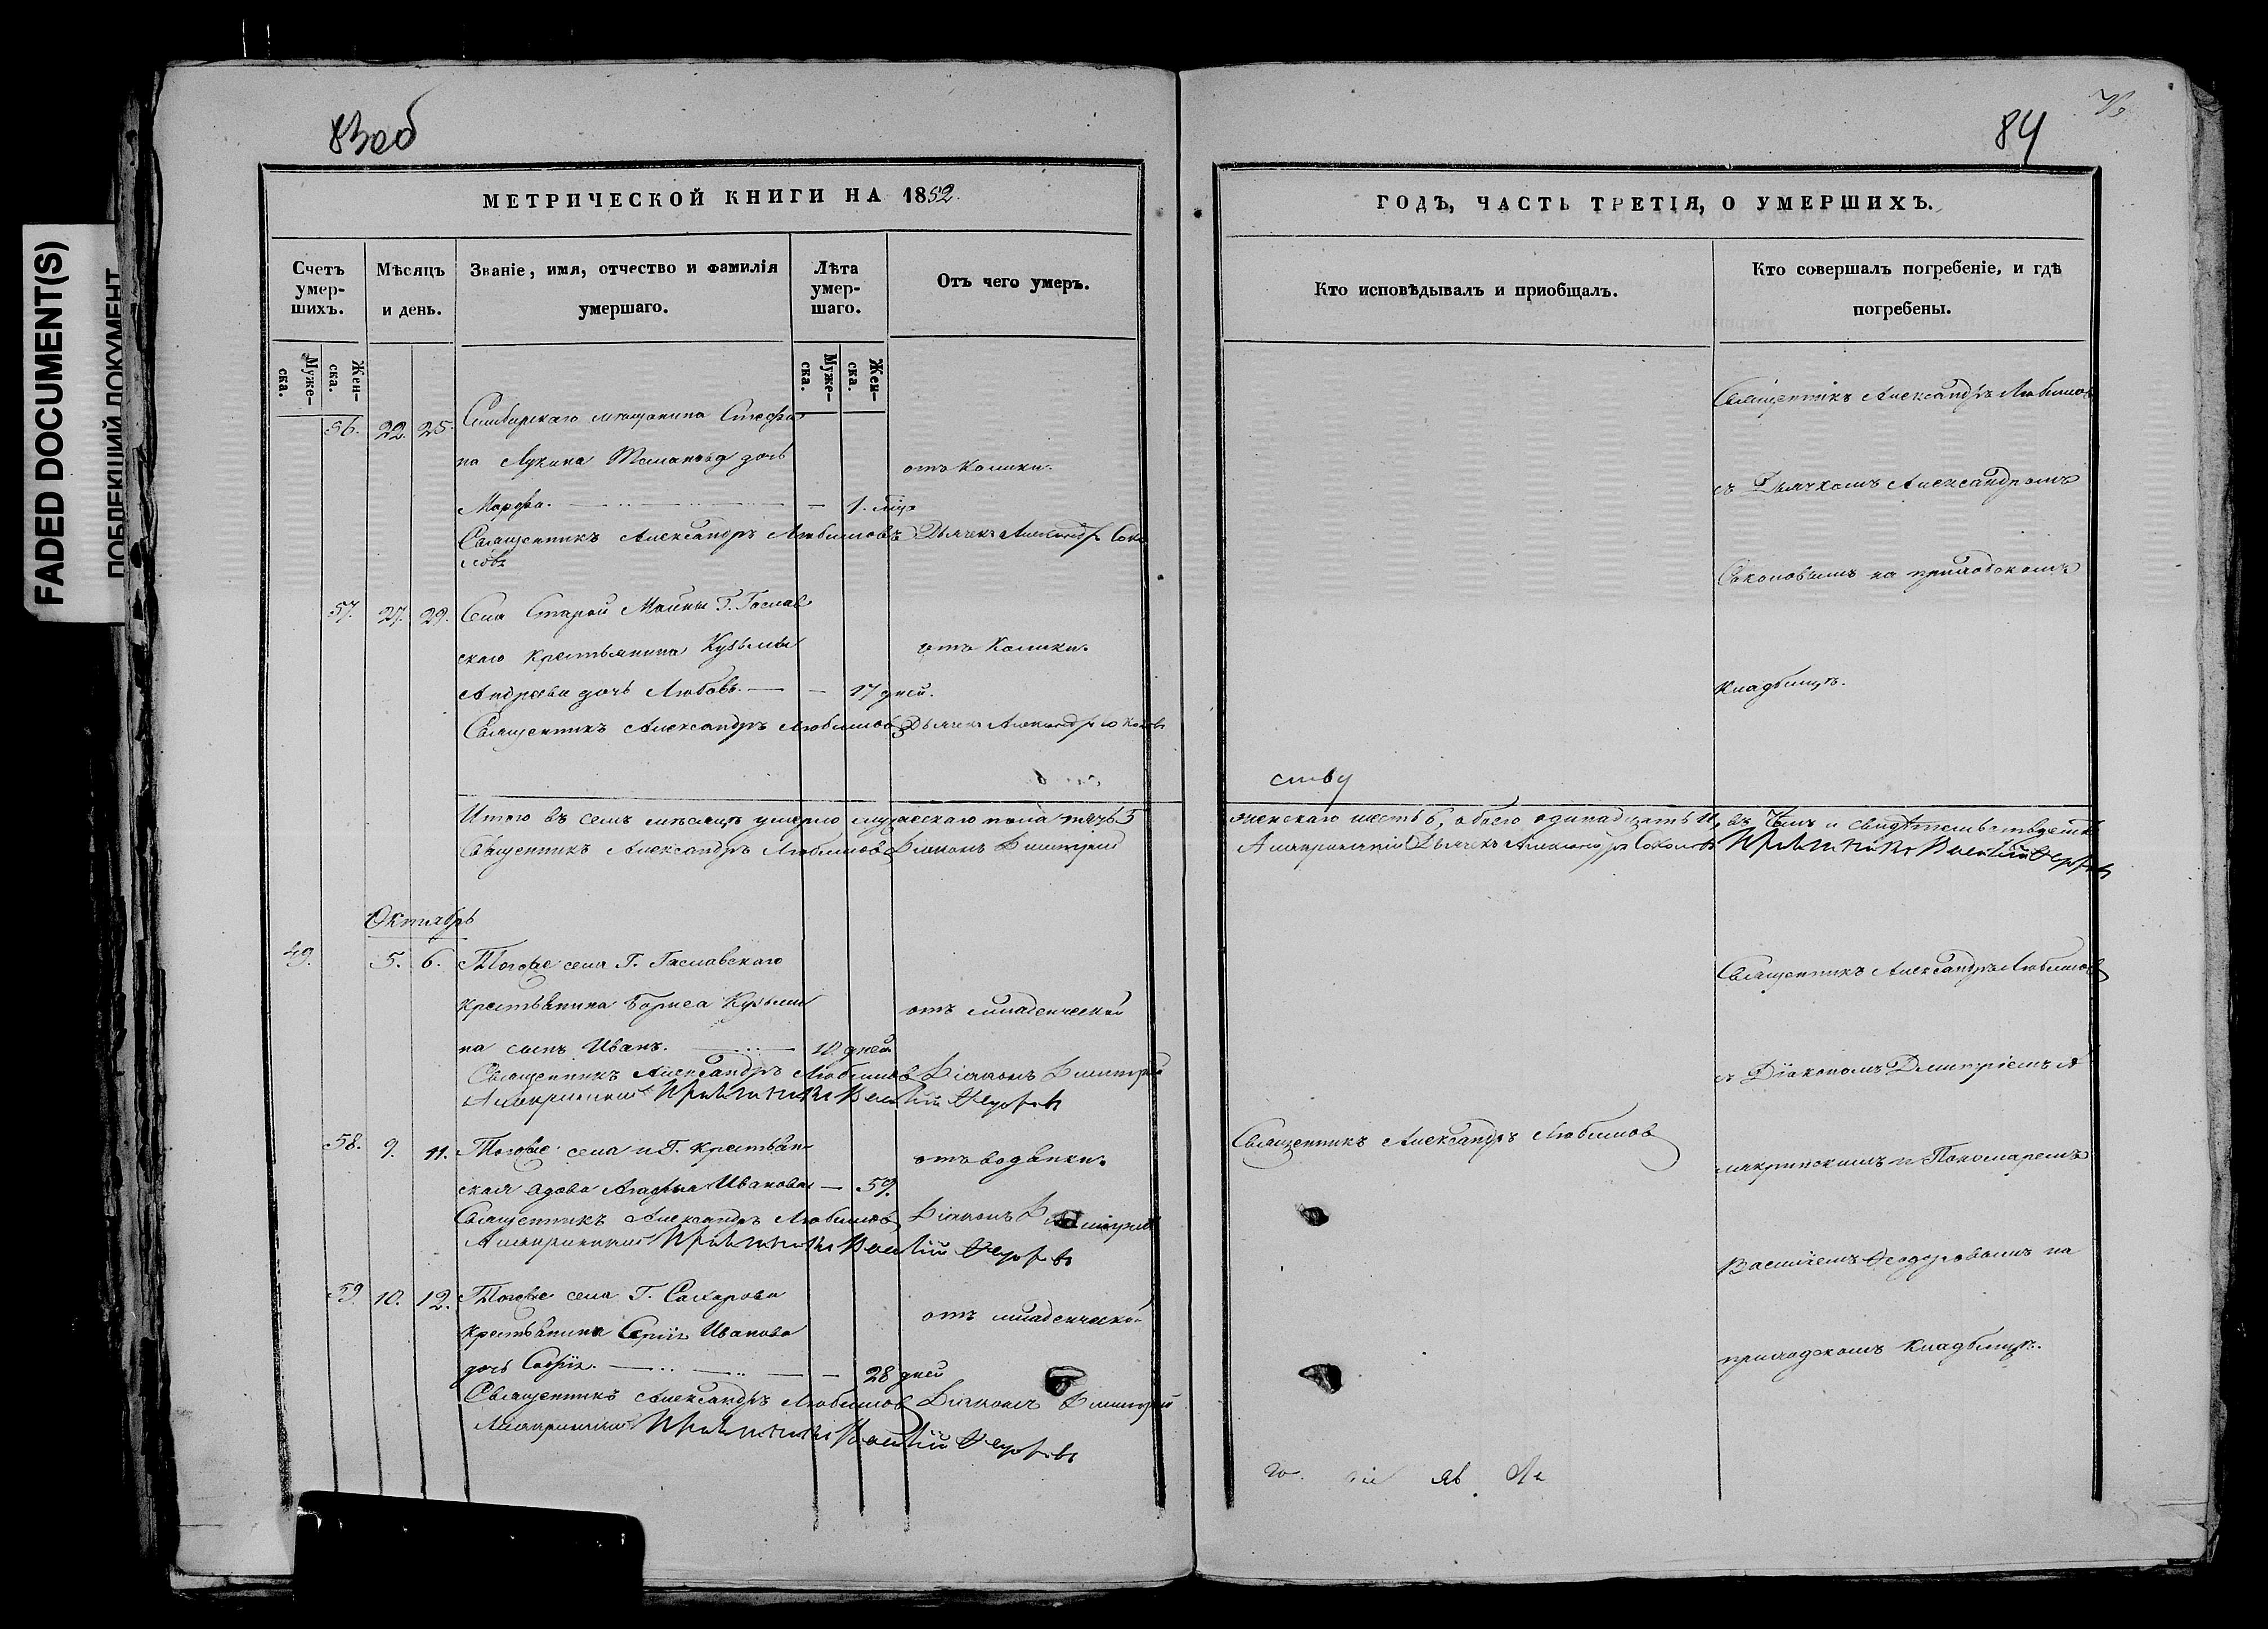 FADED DOCUMENT(S)
ПОБЛЕКШИЙ ДОКУМЕНТ
83об
МЕТРИЧЕСКОЙ КНИГИ НА 1852.
Счетъ умер-шихъ.
Мѣсяцъ и день.
Званіе, имя, отчество и фамилія умершаго.
Лѣта умер-шаго.
Отъ чего умеръ.
Муже-ска.
Жен-ска.
Муже-ска.
Жен-ска.
56. 22. 25. Симбирскаго мѣщанина Стефа
на Лукина дочь
отъ Колики.
Марфа. — 1.
Священникъ Александръ Любимовъ Дьячекъ Александръ Соко
ловъ
57. 27. 29. Села Старой Майны Г.
скаго крестьянина Кузьмы
отъ Колики.
Андреева дочь Любовь. — 17 дней.
Священникъ Александръ Любимовъ Дьячекъ Александръ Соколовъ
Итого въ семъ мѣсяцѣ умерло мужескаго пола пять 5
Священникъ Александръ Любимовъ Діаконъ Димитрій
Октябрь
49. 5. 6. Тогоже села Г.
крестьянина Бориса Кузьми
отъ младенческой
на сынъ Иванъ. — дней
Священникъ Александръ Любимовъ Діаконъ Димитрій
Василій
58. 9. 11. Тогоже села и Г. крестьян-
отъ водянки.
ская вдова Агафья Иванова — 59.
Священникъ Александръ Любимовъ Діаконъ Димитрій
Василій
59. 10. 12. Тогоже села Г. Сахарова
отъ младенческой
крестьянина Сергія Иванова
дочь Софія. — 28 дней
Священникъ Александръ Любимовъ Діаконъ Димитрій
Василій
84
ГОДЪ, ЧАСТЬ ТРЕТІЯ, О УМЕРШИХЪ.
Кто исповѣдывалъ и приобщалъ.
Кто совершалъ погребеніе, и гдѣ погребены.
Священникъ Александръ Любимовъ
съ Дьячкомъ Александромъ
Соколовымъ на приходскомъ
кладбищѣ.
женскаго шесть 6, обоего одинадцать 11, въ чемъ и свидѣтельствуемъ
Дьячекъ Александръ Соколовъ Василій
Священникъ Александръ Любимовъ
съ Діакономъ Димитріемъ А
Священникъ Александръ Любимовъ
макринскимъ и Пономаремъ
Василіемъ Ѳеодоровымъ на
приходскомъ кладбищѣ.